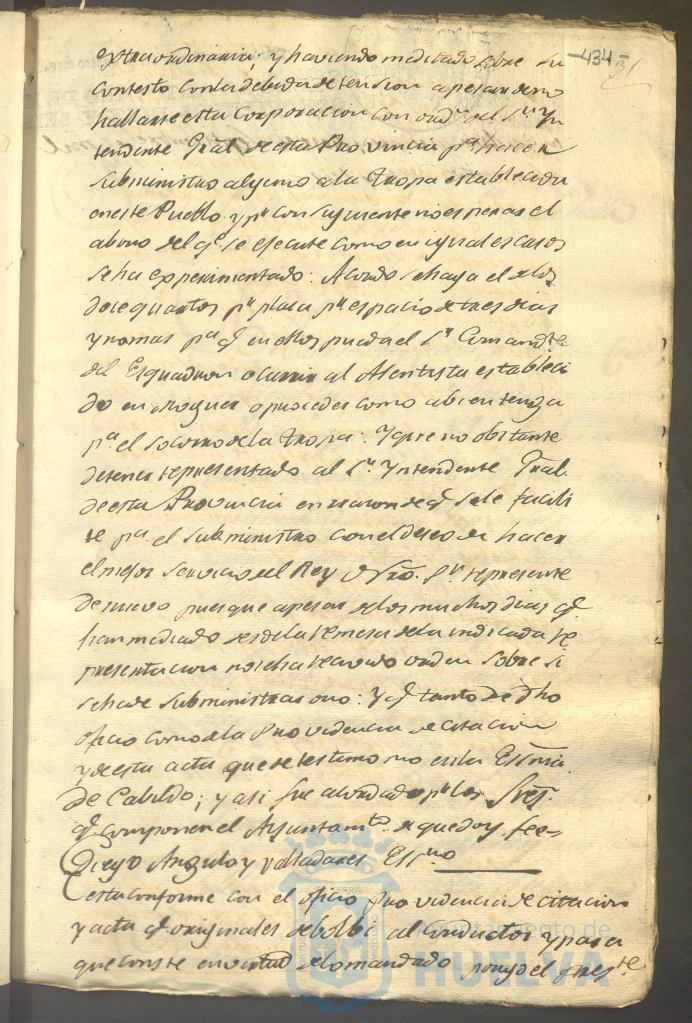 -434-
extraordinaria, y haviendo meditado sobre su
contesto con la debida detencion apesar de no
hallarse esta Corporacion con ordn. del Sr. Yn
tendente Gral. de esta Provincia pa. hacer
subministro alguno a la tropa establecida
en este Pueblo y pr. consiguiente no esperar el
abono del q. se ejecute como en iguales casos
se ha experimentado: Acordó se haga el de los
doce quartos pr. plaza pr. espacio de tres dias
y no mas pa. q. en ellos pueda el Sr. Comandte.
del Esquadron ocurrir al Asentista estableci
do en Moguer o proceder como a bien tenga
pa. el socorro de la tropa: Y que no obstante
de tener representado al Sr. Yntendente Gral.
de esta Provincia en razon de q. se le facili
te pa. el subministro con el deseo de hacer
el mejor servicio del Rey Nro. Sr. represente
de nuevo pues que apesar de los muchos dias q.
han mediado desde la remesa de la indicada re
presentacion no se ha recivido orden sobre si
se ha de subministrar o no: Y q. tanto de dho
oficio como de la Providencia de citacion
y de esta acta quede testimonio en la Essnia.
de Cabildo; y asi fue acordado pr. los Sres.
q. componen el Ayuntamto. de que doy fee=
Diego Angulo y Valladares Essno.
Esta conforme con el oficio providencia de citacion
y acta q. originales debolbi al conductor y para
que conste en virtud de lo mandado pongo el preste.
Ayuntamiento de
HUELVA